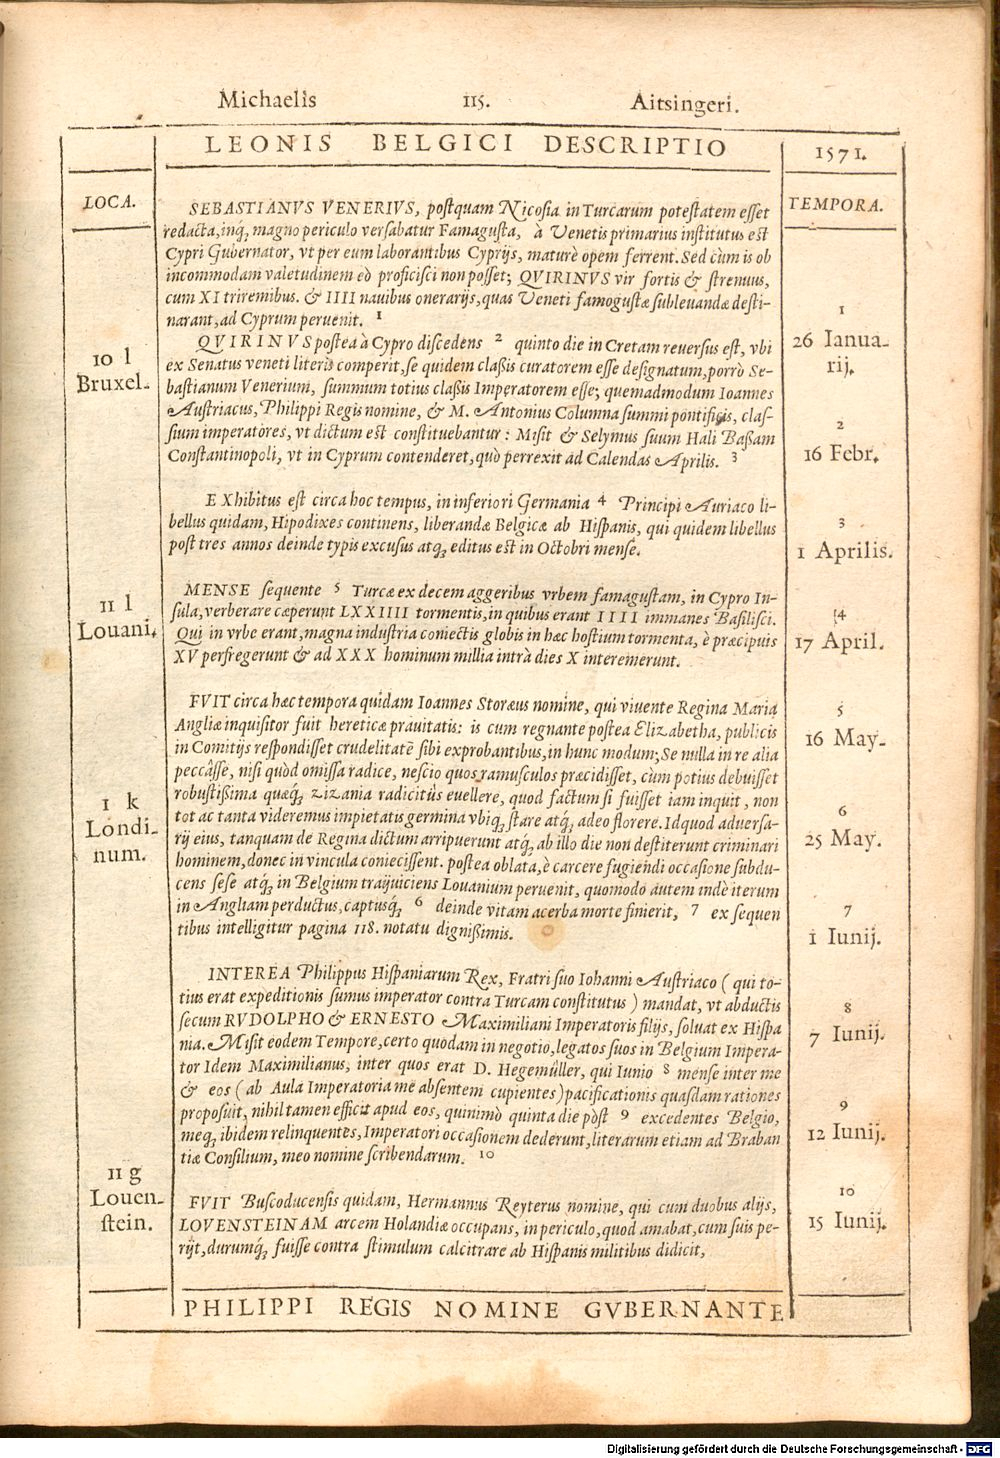 Michaelis 115. Aitsingeri.
LEONIS BELGICI DESCRIPTIO
1571.
LOCA.
TEMPORA.
SEBASTIANVS VENERIVS, postquam Nicosia in Turcarum potestatem esset
redacta, inq́, magno periculo versabatur Famagusta, à Venetis primarius institutus est
Cypri Gubernator, vt per eum laborantibus Cyprijs, maturè opem ferrent. Sed cùm is ob
incommodam valetudinem eò proficisci non posset; QVIRINVS vir fortis & strenuus,
cum XI triremibus. & IIII nauibus onerarijs, quas Veneti famogustæ subleuandæ desti-
narant, ad Cyprum peruenit. 1
QVIRINVS postea à Cypro discedens 2 quinto die in Cretam reuersus est, vbi
ex Senatus veneti literis comperit, se quidem classis curatorem esse designatum, porrò Se-
bastianum Venerium, summum totius classis Imperatorem esse; quemadmodum Ioannes
Austriacus, Philippi Regis nomine, & M. Antonius Columna summi pontificis, clas-
sium imperatores, vt dictum est constituebantur: Misit & Selymus suum Hali Bassam
Constantinopoli, vt in Cyprum contenderet, quò perrexit ad Calendas Aprilis. 3
EXhibitus est circa hoc tempus, in inferiori Germania 4 Principi Auriaco li-
bellus quidam, Hipodixes continens, liberandæ Belgicæ ab Hispanis, qui quidem libellus
post tres annos deinde typis excusus atq́; editus est in Octobri mense.
MENSE sequente 5 Turcæ ex decem aggeribus vrbem famagustam, in Cypro In-
sula, verberare cæperunt LXXIIII tormentis, in quibus erant IIII immanes Basilisci.
Qui in vrbe erant, magna industria coniectis globis in hæc hostium tormenta, è præcipuis
XV perfregerunt & ad XXX hominum millia intrà dies X interemerunt.
FVIT circa hæc tempora quidam Ioannes Storæus nomine, qui viuente Regina Maria
Angliæ inquisitor fuit hereticæ prauitatis: is cum regnante postea Elizabetha, publicis
in Comitijs respondisset crudelitatē sibi exprobantibus, in hunc modum; Se nulla in re alia
peccâsse, nisi quòd omissa radice, nescio quos ramusculos præcidisset, cùm potius debuisset
robustissima quæq́; zizania radicitùs euellere, quod factum si fuisset iam inquit, non
tot ac tanta videremus impietatis germina vbiq́; stare atq́; adeo florere. Idquod aduersa-
rij eius, tanquam de Regina dictum arripuerunt atq́; ab illo die non destiterunt criminari
hominem, donec in vincula coniecissent. postea oblata, è carcere fugiendi occasione subdu-
cens sese atq́; in Belgium traijuiciens Louanium peruenit, quomodo autem indè iterum
in Angliam perductus, captusq́; 6 deinde vitam acerba morte finierit, 7 ex sequen
tibus intelligitur pagina 118. notatu dignissimis.
INTEREA Philippus Hispaniarum Rex, Fratri suo Iohanni Austriaco (qui to-
tius erat expeditionis sumus imperator contra Turcam constitutus) mandat, vt abductis
secum RVDOLPHO & ERNESTO Maximiliani Imperatoris filijs, soluat ex Hispa
nia. Misit eodem Tempore, certo quodam in negotio, legatos suos in Belgium Impera-
tor Idem Maximilianus, inter quos erat D. Hegemüller, qui Iunio 8 mense inter me
& eos (ab Aula Imperatoria me absentem cupientes) pacificationis quasdam rationes
proposuit, nihil tamen efficit apud eos, quinimò quinta die pòst 9 excedentes Belgio,
meq́; ibidem relinquentes, Imperatori occasionem dederunt, literarum etiam ad Braban
tiæ Consilium, meo nomine scribendarum. 10
FVIT Buscoducensis quidam, Hermannus Reyterus nomine, qui cum duobus alijs,
LOVENSTEINAM arcem Holandiæ occupans, in periculo, quod amabat, cum suis pe-
rijt, durumq́; fuisse contra stimulum calcitrare ab Hispanis militibus didicit,
10 l
Bruxel-
11 l
Louani.
1 k
Londi-
num.
11 g
Louen-
stein.
1
26 Ianua-
rij.
2
16 Febr.
3
1 Aprilis.
4
17 April.
5
16 May-
6
25 May.
7
1 Iunij.
8
7 Iunij.
9
12 Iunij.
10
15 Iunij.
PHILIPPI REGIS NOMINE GVBERNANTE
Digitalisierung gefördert durch die Deutsche Forschungsgemeinschaft - DFG